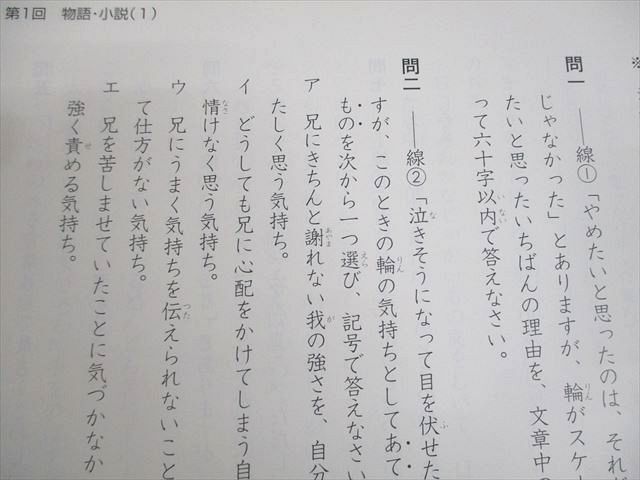 第1回 物語・小説(1)
※
問一 ――線①「やめたいと思ったのは、それだ
じゃなかった」とありますが、輪がスケー
たいと思ったいちばんの理由を、文章中の
って六十字以内で答えなさい。
問二 ――線②「泣きそうになって目を伏せた
すが、このときの輪の気持ちとしてあて
ものを次から一つ選び、記号で答えなさい
ア 兄にきちんと謝れない我の強さを、自分
たしく思う気持ち。
イ どうしても兄に心配をかけてしまう自
情けなく思う気持ち。
ウ 兄にうまく気持ちを伝えられないこと
て仕方がない気持ち。
エ 兄を苦しませていたことに気づかなか
強く責める気持ち。